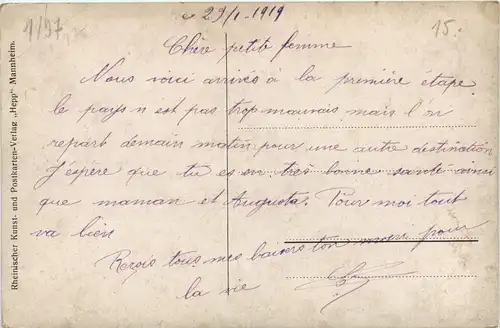 1/97
le 29/1-1919
15.-
Chère petite femme
Nous voici arrivés à la première étape
le pays n est pas trop mauvais mais l'on
repart demain matin pour une autre destination
J'espère que tu es en très bonne santé ainsi
que maman et Augusta. Pour moi tout
va bien
Reçois tous mes baisers ton mari pour
la vie
Rheinischer Kunst- und Postkarten-Verlag „Hepp" Mannheim.